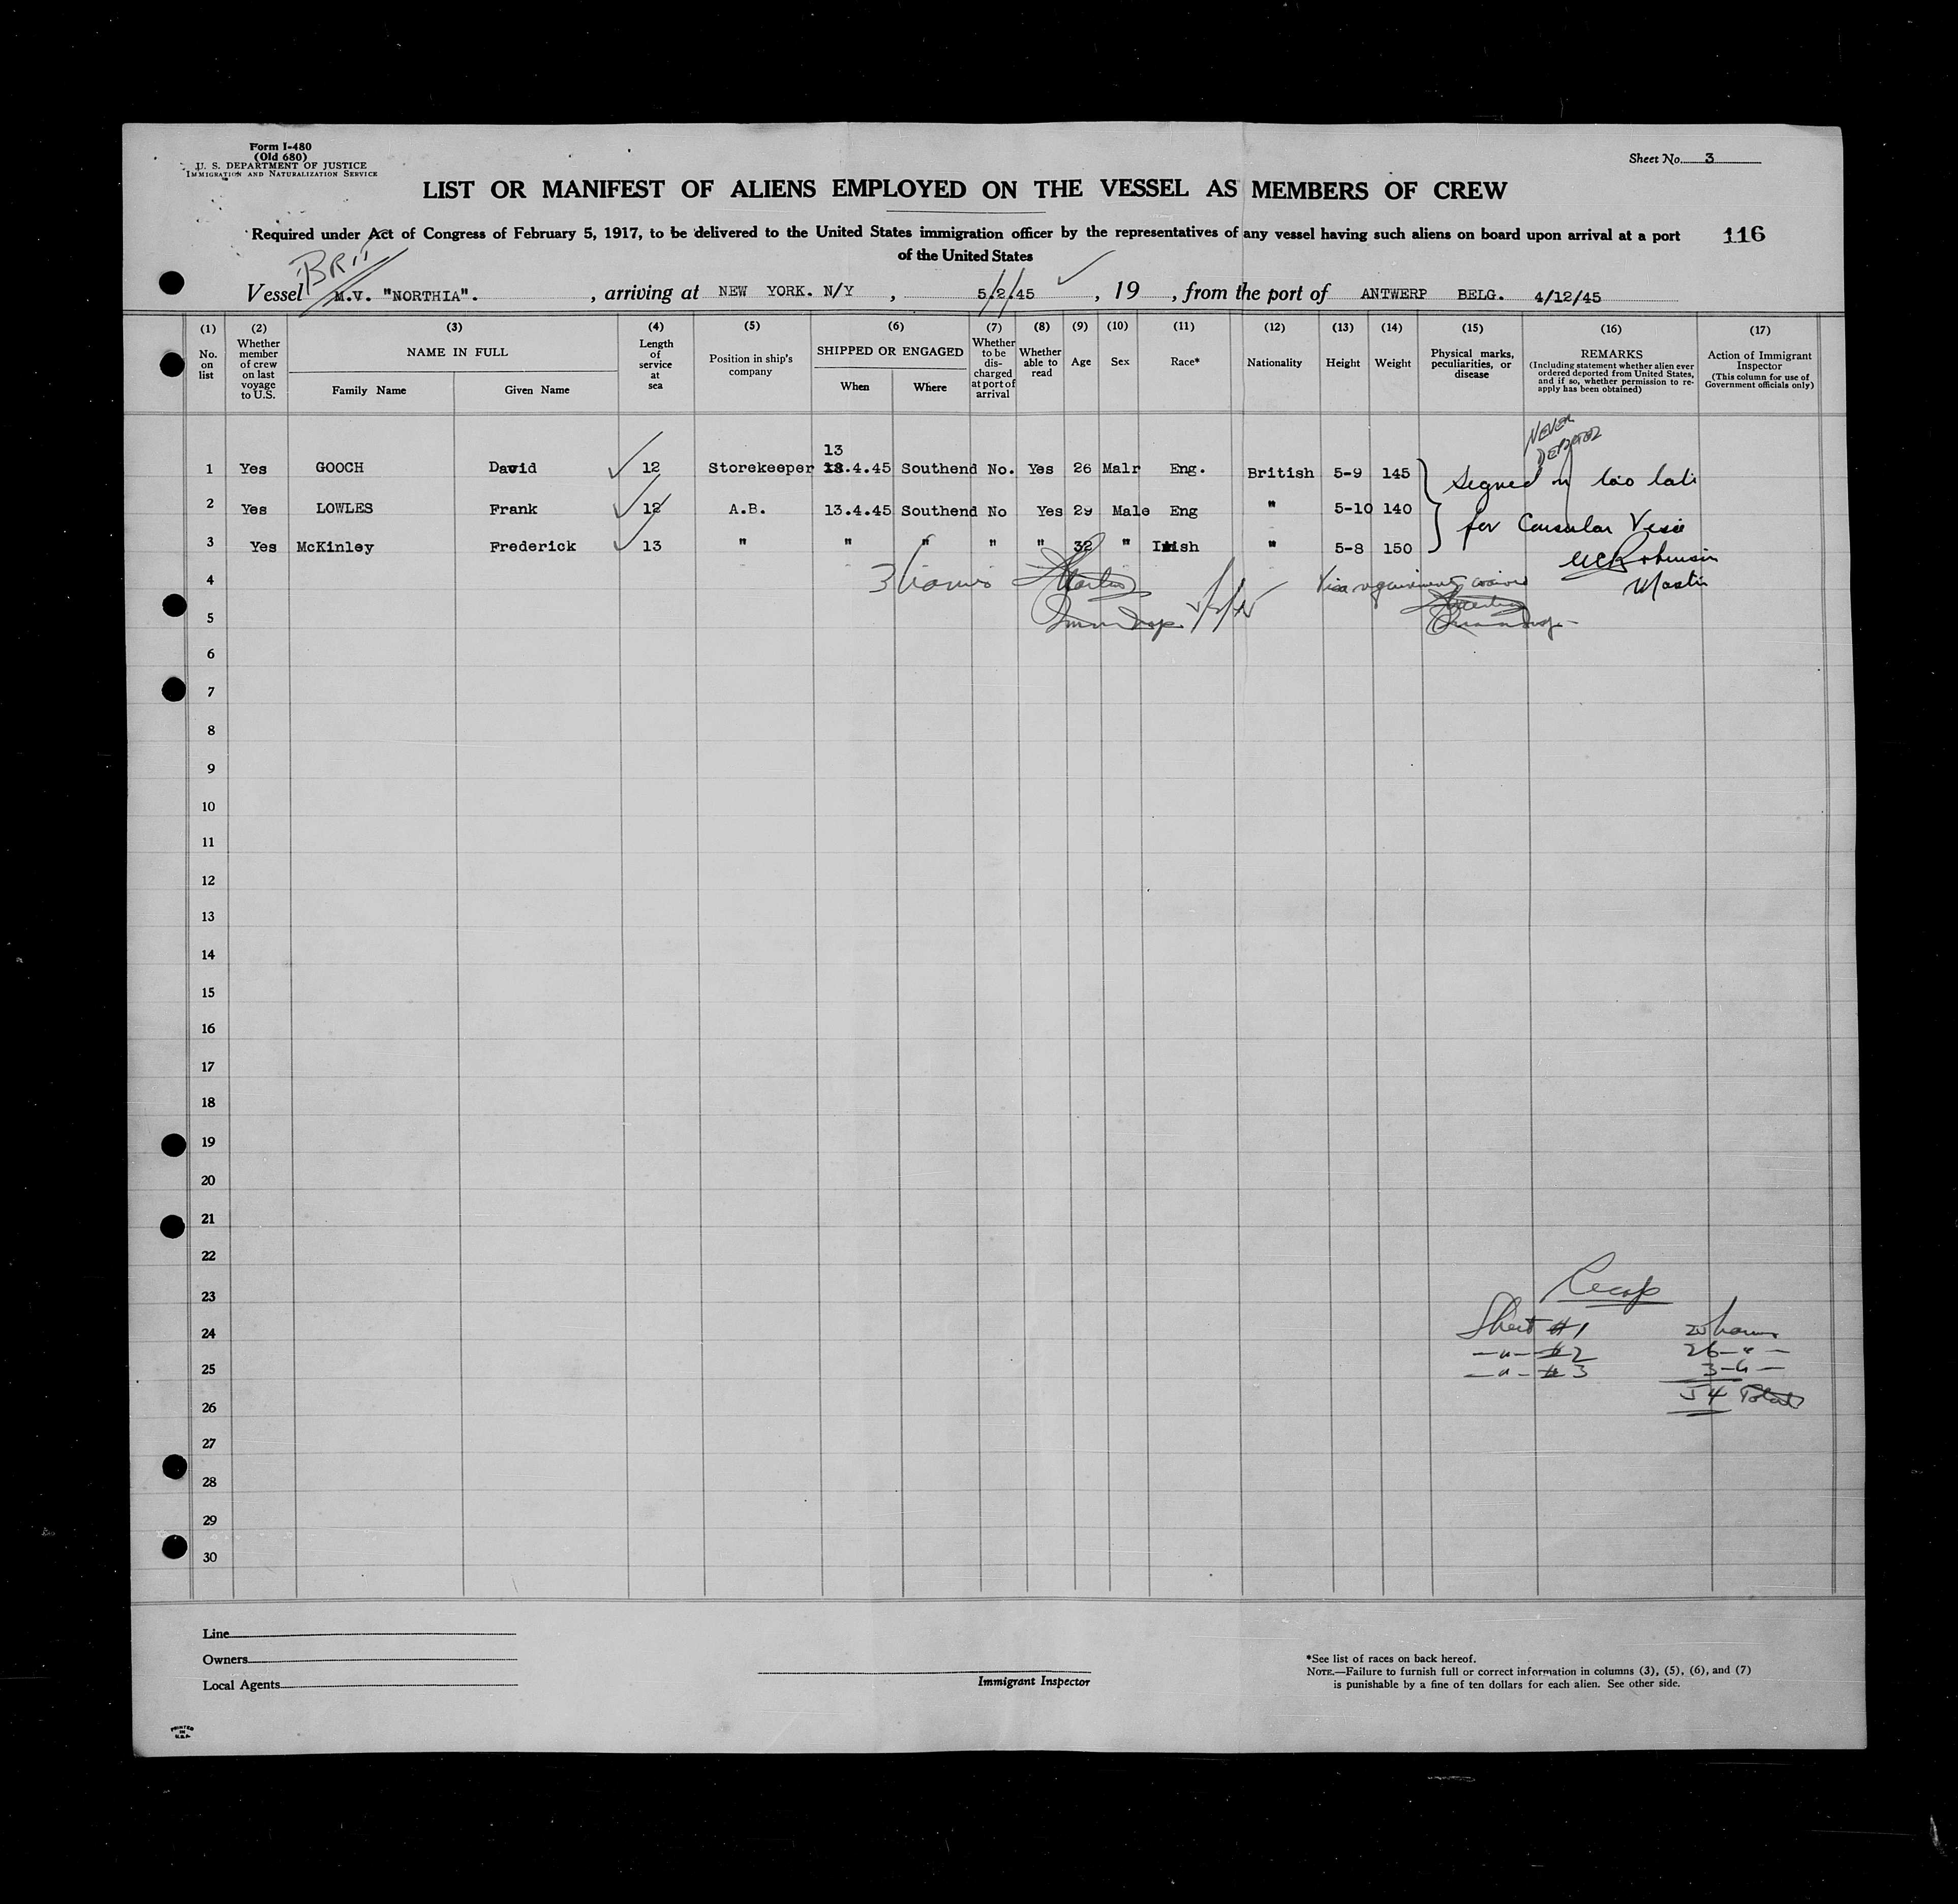 Form I-480
(Old 680)
U. S. DEPARTMENT OF JUSTICE
IMMIGRATION AND NATURALIZATION SERVICE
Sheet No. 3
LIST OR MANIFEST OF ALIENS EMPLOYED ON THE VESSEL AS MEMBERS OF CREW
Required under Act of Congress of February 5, 1917, to be delivered to the United States immigration officer by the representatives of any vessel having such aliens on board upon arrival at a port
of the United States
116
BRIT
Vessel M.V. "NORTHIA". , arriving at NEW YORK. N/Y , 5/2/45 , 19 , from the port of ANTWERP BELG. 4/12/45
(1) No. on list
(2) Whether member of crew on last voyage to U.S.
(3) NAME IN FULL
Family Name Given Name
(4) Length of service at sea
(5) Position in ship's company
(6) SHIPPED OR ENGAGED
When Where
(7) Whether to be dis-charged at port of arrival
(8) Whether able to read
(9) Age
(10) Sex
(11) Race*
(12) Nationality
(13) Height
(14) Weight
(15) Physical marks, peculiarities, or disease
(16) REMARKS
(Including statement whether alien ever ordered deported from United States, and if so, whether permission to re-apply has been obtained)
(17) Action of Immigrant Inspector
(This column for use of Government officials only)
NEVER
DEPORTED
13
1 Yes GOOCH David 12 Storekeeper 18.4.45 Southend No. Yes 26 Malr Eng. British 5-9 145
Signed on too late
2 Yes LOWLES Frank 12 A.B. 13.4.45 Southend No Yes 29 Male Eng " 5-10 140
for Consular Visa
3 Yes McKinley Frederick 13 " " " " " 32 " Irish " 5-8 150
Robinson
Master
4 3 Visa requirements waived
5
6
7
8
9
10
11
12
13
14
15
16
17
18
19
20
21
22
23
Recap
24 Sheet #1
25 —"— #2 26 — " —
—"— #3 3 — " —
26 54 Total
27
28
29
30
Line
Owners
Local Agents
Immigrant Inspector
*See list of races on back hereof.
NOTE.—Failure to furnish full or correct information in columns (3), (5), (6), and (7)
is punishable by a fine of ten dollars for each alien. See other side.
PRINTED
IN
U.S.A.